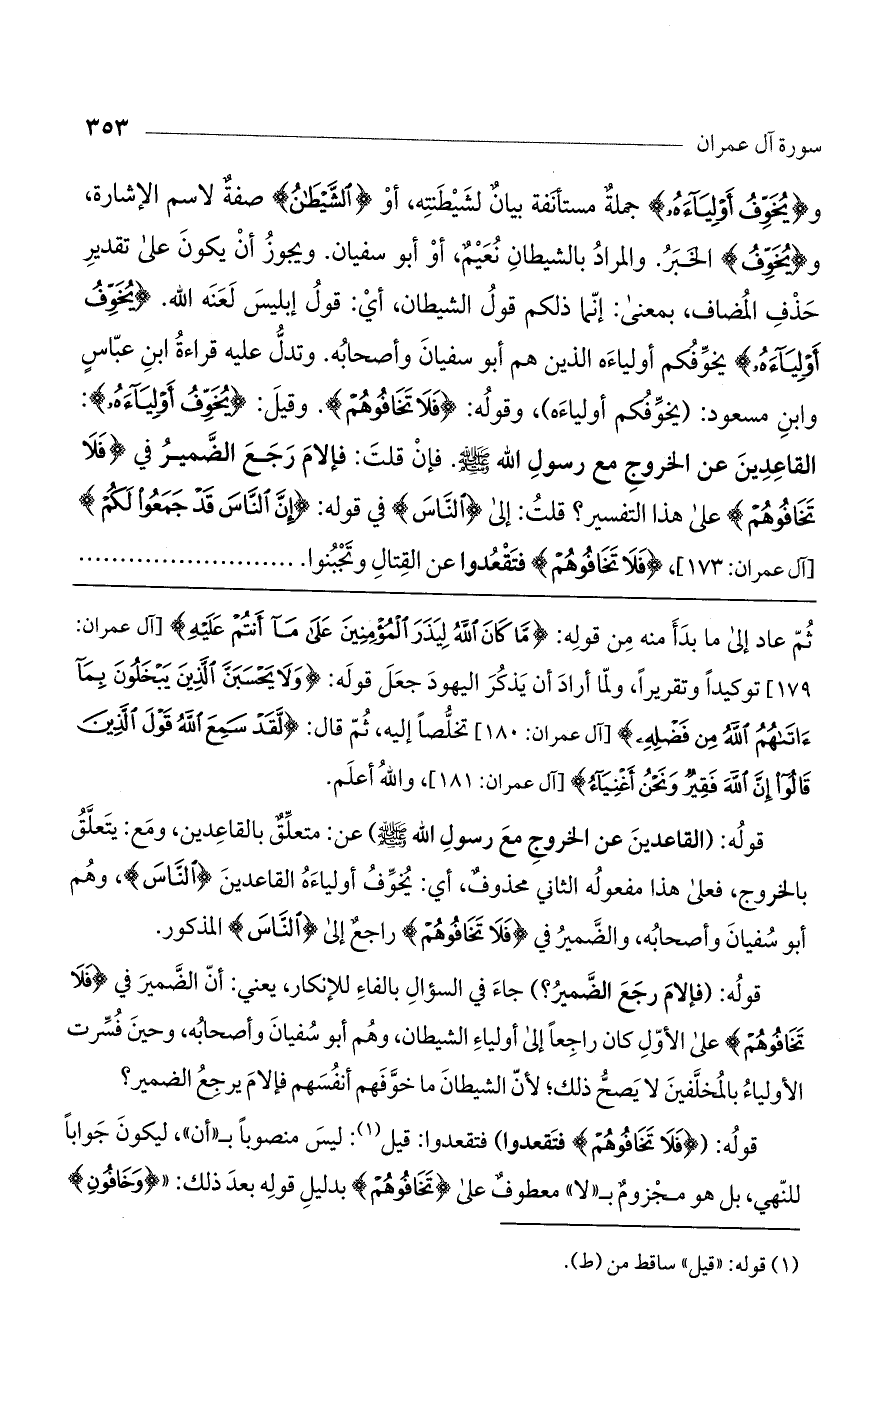 سورة آل عمران ٣٥٣
و﴿يُخَوِّفُ أَوْلِيَآءَهُۥ﴾ جملةٌ مستأنَفة بيانٌ لشَيْطَنتِه، أوْ ﴿ٱلشَّيْطَٰنُ﴾ صفةٌ لاسم الإشارة،
و﴿يُخَوِّفُ﴾ الخَبَرُ. والمرادُ بالشيطانِ نُعَيْمٌ، أوْ أبو سفيان. ويجوزُ أنْ يكونَ علىٰ تقديرِ
حَذْفِ المُضاف، بمعنىٰ: إنّما ذلكم قولُ الشيطان، أيْ: قولُ إبليسَ لَعَنَه الله. ﴿يُخَوِّفُ
أَوْلِيَآءَهُۥ﴾ يخوِّفُكم أولياءَه الذين هم أبو سفيانَ وأصحابُه. وتدلُّ عليه قراءةُ ابنِ عبّاسٍ
وابنِ مسعود: (يخوِّفُكم أولياءَه)، وقولُه: ﴿فَلَا تَخَافُوهُمْ﴾. وقيلَ: ﴿يُخَوِّفُ أَوْلِيَآءَهُۥ﴾:
القاعِدِينَ عن الخروجِ مع رسولِ الله ﷺ. فإنْ قلتَ: فإلامَ رَجَعَ الضَّميرُ في ﴿فَلَا
تَخَافُوهُمْ﴾ علىٰ هذا التفسير؟ قلتُ: إلىٰ ﴿ٱلنَّاسَ﴾ في قوله: ﴿إِنَّ ٱلنَّاسَ قَدْ جَمَعُوا۟ لَكُمْ﴾
[آل عمران: ١٧٣]، ﴿فَلَا تَخَافُوهُمْ﴾ فتَقْعُدوا عن القِتالِ وتَجْبُنوا. ........................
ثُمّ عاد إلىٰ ما بدَأَ منه مِن قولِه: ﴿مَّا كَانَ ٱللَّهُ لِيَذَرَ ٱلْمُؤْمِنِينَ عَلَىٰ مَآ أَنتُمْ عَلَيْهِ﴾ [آل عمران:
١٧٩] توكيداً وتقريراً، ولمّا أرادَ أن يَذكُرَ اليهودَ جعَلَ قولَه: ﴿وَلَا يَحْسَبَنَّ ٱلَّذِينَ يَبْخَلُونَ بِمَآ
ءَاتَىٰهُمُ ٱللَّهُ مِن فَضْلِهِۦ﴾ [آل عمران: ١٨٠] تخلُّصاً إليه، ثُمّ قال: ﴿لَّقَدْ سَمِعَ ٱللَّهُ قَوْلَ ٱلَّذِينَ
قَالُوٓا۟ إِنَّ ٱللَّهَ فَقِيرٌ وَنَحْنُ أَغْنِيَآءُ﴾ [آل عمران: ١٨١]، واللهُ أعلَم.
قولُه: (القاعدينَ عن الخروجِ معَ رسولِ الله ﷺ) عن: متعلِّقٌ بالقاعِدين، ومَع: يتَعلَّقُ
بالخروج، فعلىٰ هذا مفعولُه الثاني محذوفٌ، أي: يُخوِّفُ أولياءَهُ القاعدينَ ﴿ٱلنَّاسَ﴾، وهُم
أبو سُفيانَ وأصحابُه، والضَّميرُ في ﴿فَلَا تَخَافُوهُمْ﴾ راجعٌ إلىٰ ﴿ٱلنَّاسَ﴾ المذكور.
قولُه: (فإلامَ رجَعَ الضَّميرُ؟) جاءَ في السؤالِ بالفاءِ للإنكار، يعني: أنّ الضَّميرَ في ﴿فَلَا
تَخَافُوهُمْ﴾ علىٰ الأوّلِ كان راجِعاً إلىٰ أولياءِ الشيطان، وهُم أبو سُفيانَ وأصحابُه، وحينَ فُسِّرت
الأولياءُ بالمُخلَّفينَ لا يَصحُّ ذلك؛ لأنّ الشيطانَ ما خوَّفَهم أنفُسَهم فإلامَ يرجِعُ الضمير؟
قولُه: (﴿فَلَا تَخَافُوهُمْ﴾ فتَقعدوا) فتقعدوا: قيل(١): ليسَ منصوباً بـ«أن»، ليكونَ جَواباً
للنّهي، بل هو مجْزومٌ بـ«لا» معطوفٌ علىٰ ﴿تَخَافُوهُمْ﴾ بدليلِ قولِه بعدَ ذلك: «﴿وَخَافُونِ﴾
(١) قوله: «قيل» ساقط من (ط).